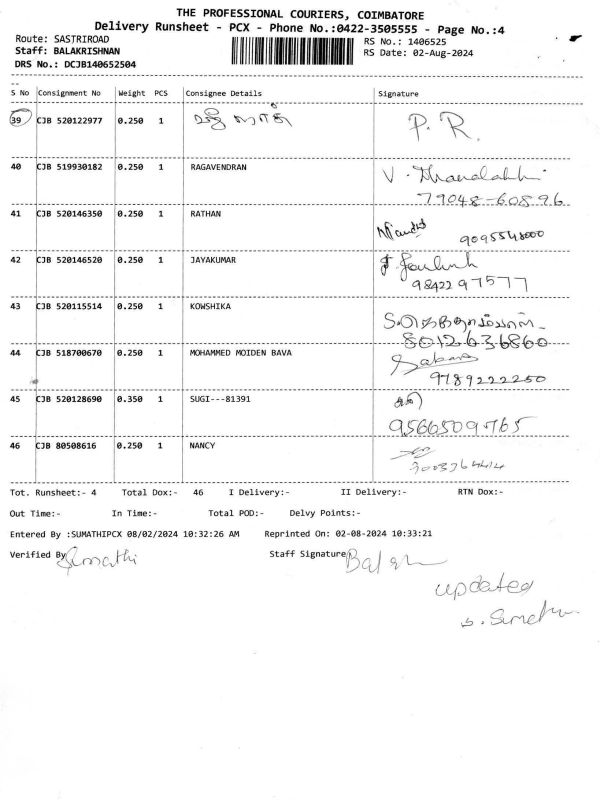 THE PROFESSIONAL COURIERS, COIMBATORE
Delivery Runsheet - PCX - Phone No.:0422-3505555 - Page No.:4
Route: SASTRIROAD RS No.: 1406525
Staff: BALAKRISHNAN RS Date: 02-Aug-2024
DRS No.: DCJB140652504
S No Consignment No Weight PCS Consignee Details Signature
39 CJB 520122977 0.250 1 P. R.
40 CJB 519930182 0.250 1 RAGAVENDRAN V.
79048-60896
41 CJB 520146350 0.250 1 RATHAN
9095548000
42 CJB 520146520 0.250 1 JAYAKUMAR
9842297577
43 CJB 520115514 0.250 1 KOWSHIKA
8012636860
44 CJB 518700670 0.250 1 MOHAMMED MOIDEN BAVA
9789222250
45 CJB 520128690 0.350 1 SUGI---81391
9566509765
46 CJB 80508616 0.250 1 NANCY
Tot. Runsheet:- 4 Total Dox:- 46 I Delivery:- II Delivery:- RTN Dox:-
Out Time:- In Time:- Total POD:- Delvy Points:-
Entered By :SUMATHIPCX 08/02/2024 10:32:26 AM Reprinted On: 02-08-2024 10:33:21
Verified By Sumathi Staff Signature
updated